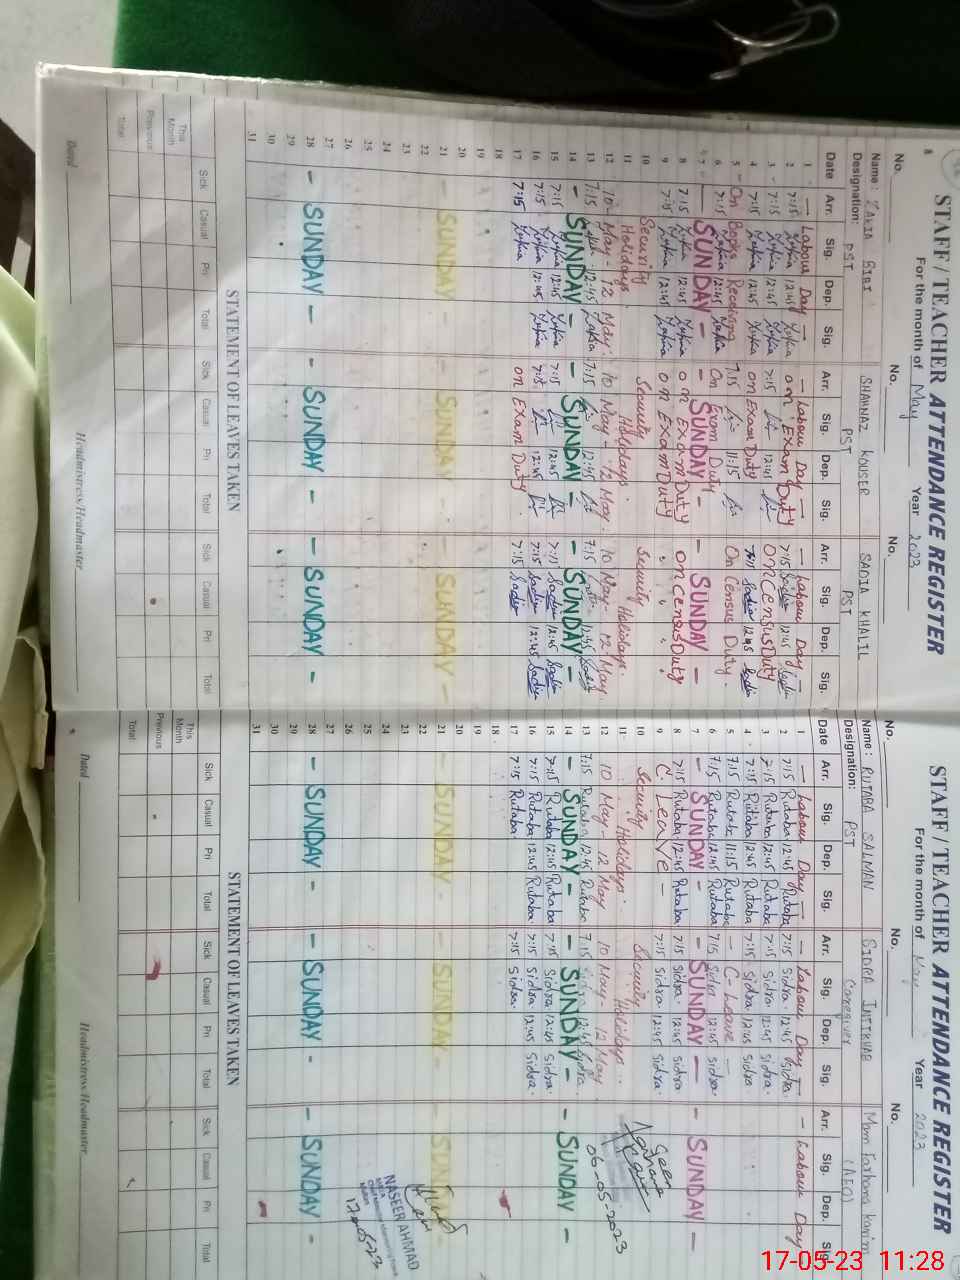 8
STAFF / TEACHER ATTENDANCE REGISTER
For the month of May Year 2023
No. No. No.
Name: ZAKIA BIBI SHAHNAZ KOUSER SADIA KHALIL
Designation: PST PST PST
Date Arr. Sig. Dep. Sig. Arr. Sig. Dep. Sig. Arr. Sig. Dep. Sig.
1 — Labour Day — — Labour Day — — Labour Day —
2 7:15 Zakia 12:45 Zakia on Exam Duty 7:15 Sadia 12:45 Sadia
3 7:15 Zakia 12:45 Zakia 7:15 12:45 on Census Duty
4 7:15 Zakia 12:45 Zakia on Exam Duty 7:15 Sadia 12:45 Sadia
5 - On Books Receiving 7:15 11:15 On Census Duty.
6 7:15 Zakia 12:45 Zakia On Exam Duty
7 — SUNDAY — — SUNDAY — — SUNDAY —
8 7:15 Zakia 12:45 Zakia on Exam Duty on Census Duty
9 7:15 Zakia 12:45 Zakia on Exam Duty
10 Security Security Security
11 Holidays Holidays. Holidays.
12 10 - May - 12 May. 10 May - 12 May. 10 May - 12 May
13 7:15 Zakia 12:45 Zakia 7:15 12:45 7:15
14 — SUNDAY — — SUNDAY — — SUNDAY —
15 7:15 Zakia 12:45 Zakia 7:15 12:45 7:15 Sadia 12:45 Sadia
16 7:15 Zakia 12:45 Zakia 7:15 12:45 7:15 Sadia 12:45 Sadia
17 7:15 Zakia on Exam Duty 7:15 Sadia
18
19
20
21 - SUNDAY - - SUNDAY - - SUNDAY -
22
23
24
25
26
27
28 - SUNDAY - - SUNDAY - - SUNDAY -
29
30
31
STATEMENT OF LEAVES TAKEN
Sick Casual Pri Total Sick Casual Pri Total Sick Casual Pri Total
This Month
Previous
Total
Dated Headmistress/Headmaster
STAFF / TEACHER ATTENDANCE REGISTER
For the month of May Year 2023
No. No. No.
Name: RUTABA SALMAN SIDRA INTIKHAB Mam Farhana Karim
Designation: PST Caregiver (AEO)
Date Arr. Sig. Dep. Sig. Arr. Sig. Dep. Sig. Arr. Sig. Dep. Sig.
1 — Labour Day — — Labour Day — — Labour Day
2 7:15 Rutaba 12:45 Rutaba 7:15 Sidra. 12:45 Sidra.
3 7:15 Rutaba 12:45 Rutaba 7:15 Sidra. 12:45 Sidra.
4 7:15 Rutaba 12:45 Rutaba 7:15 Sidra. 12:45 Sidra.
5 7:15 Rutaba 11:15 Rutaba — C-Leave —
6 7:15 Rutaba 12:45 Rutaba 7:15 Sidra 12:45 Sidra.
7 - SUNDAY - — SUNDAY — - SUNDAY —
8 7:15 Rutaba 12:45 Rutaba 7:15 Sidra. 12:45 Sidra.
9 C. Leave — 7:15 Sidra. 12:45 Sidra.
10 Security Security Seen
11 Holidays. Holidays.
12 10 May - 12 May 10 May 12 May
13 7:15 Rutaba 12:45 Rutaba 7:15 Sidra 12:45 Sidra 06-05-2023
14 — SUNDAY - — SUNDAY — - SUNDAY -
15 7:15 Rutaba 12:45 Rutaba 7:15 Sidra 12:45 Sidra.
16 7:15 Rutaba 12:45 Rutaba 7:15 Sidra. 12:45 Sidra.
17 7:15 Rutaba. 7:15 Sidra.
18
19
20
21 - SUNDAY - - SUNDAY - - SUNDAY
22
23
24 NASEER AHMAD
25
26
27
28 - SUNDAY - - SUNDAY - - SUNDAY
29
30
31
STATEMENT OF LEAVES TAKEN
Sick Casual Pri Total Sick Casual Pri Total Sick Casual Pri Total
This Month
Previous
Total
Dated Headmistress/Headmaster
17-05-23 11:28